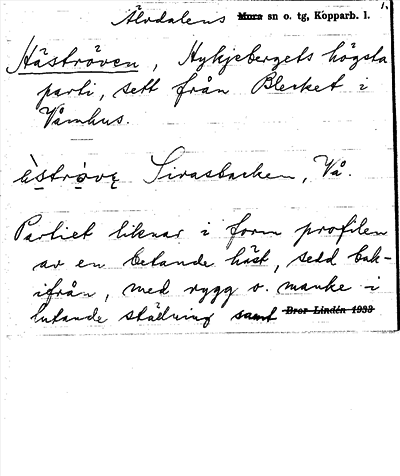 1.
Älvdalens Mora sn o. tg, Kopparb. l.
Häströven, Hykjebergets högsta
parti, sett från Blecket i
Våmhus.
Sivasbacken, Vå.
Partiet liknar i form profilen
av en betande häst, sedd bak-
ifrån, med rygg o. manke i
lutande ställning samt Bror Lindén 1933